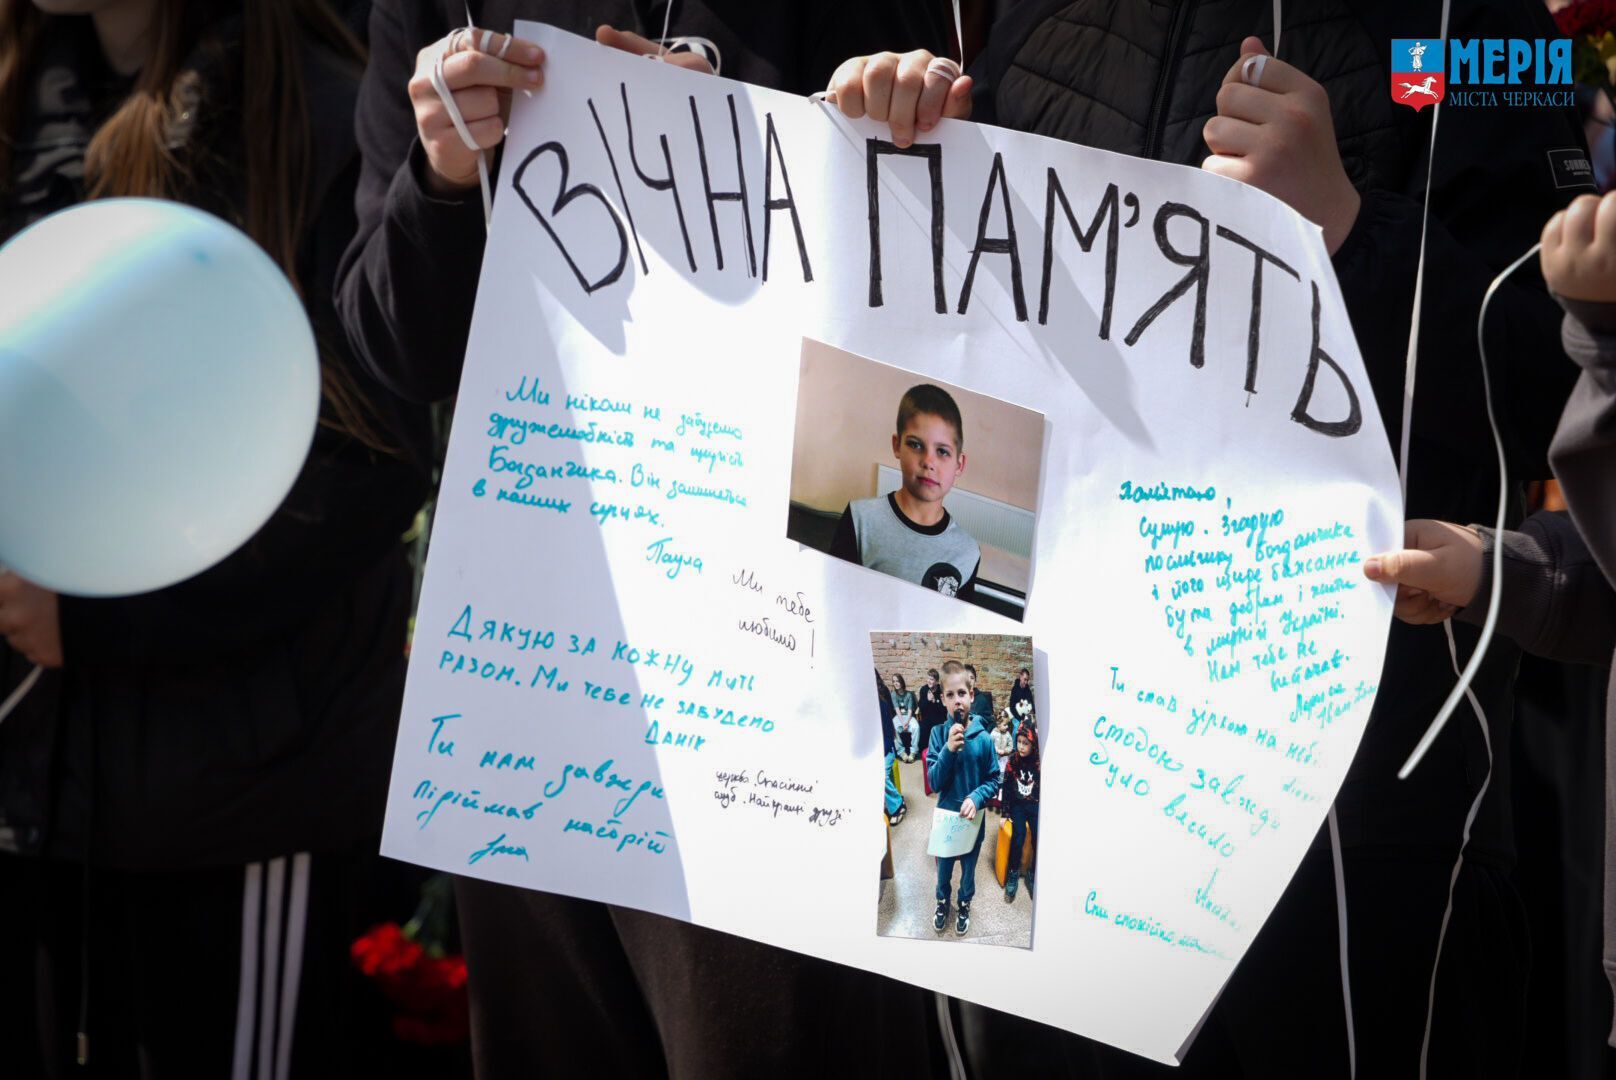 МЕРІЯ
МІСТА ЧЕРКАСИ
ВІЧНА ПАМ'ЯТЬ
Ми ніколи не забудемо
дружелюбність та щирість
Богданчика. Він залишиться
в наших серцях.
Паула
Ми тебе
любимо!
ДЯКУЮ ЗА КОЖНУ МИТЬ
РАЗОМ. МИ ТЕБЕ НЕ ЗАБУДЕМО
ДАНІК
Ти нам завжди
піднімав настрій
церква „Спасіння"
клуб „Найкращі друзі"
Пам'ятаю,
сумую. Згадую
посмішку Богданчика
і його щире бажання
бути добрим і жити
в мирній Україні.
Нам тебе не
вистачає.
Ти став зіркою на небі
З тобою завжди
було весело
Спи спокійно,
ДЯКУЮ
БОГУ